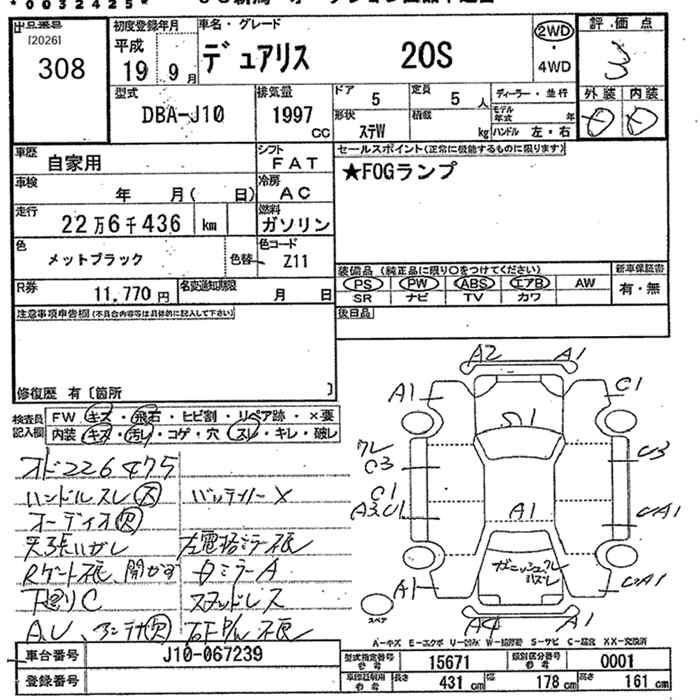 *0032425*
出品番号
[2026]
308
初度登録年月
平成
19年9月
車名・グレード
デュアリス 20S
2WD
・
4WD
評価点
3
型式
DBA-J10
排気量
1997
CC
ドア
5
定員
5人
形状
ステW
積載
kg
ディーラー・並行
モデル年式
年
ハンドル 左・右
外装 内装
D D
車歴
自家用
シフト
FAT
車検
年 月( 日)
冷房
AC
走行
22万6千436
km
燃料
ガソリン
色
メットブラック
色替
色コード
Z11
R券
11,770円
名変通知期限
月 日
セールスポイント(正常に機能するものに限ります)
★FOGランプ
装備品(純正品に限り○をつけてください)
PS PW ABS エアB AW
SR ナビ TV カワ
新車保証書
有・無
後日品
注意事項申告欄(不具合内容等は具体的に記入して下さい)
修復歴 有〔箇所 〕
検査員
記入欄
FW キズ・飛石・ヒビ割・リペア跡・×要
内装 キズ・汚レ・コゲ・穴・スレ・キレ・破レ
メド226475
ハンドルスレ(大) バッテリー×
オーディオ(欠)
天張ハガレ
Rゲート
下廻リC
スタッドレス
AU、アンテナ(欠)
A2 A1
A1 C1
S1
C3 C3
C1
A1
A1
ガーニッシュワレ
ハズレ
A1
A4 A1
スペア
A-キズ E-エクボ U-凹み W-補修跡 S-サビ C-腐食 XX-交換済
車台番号
J10-067239
登録番号
型式指定番号
参考
15671
類別区分番号
参考
0001
車検証記載
参考
長さ
431cm
幅
178cm
高さ
161cm